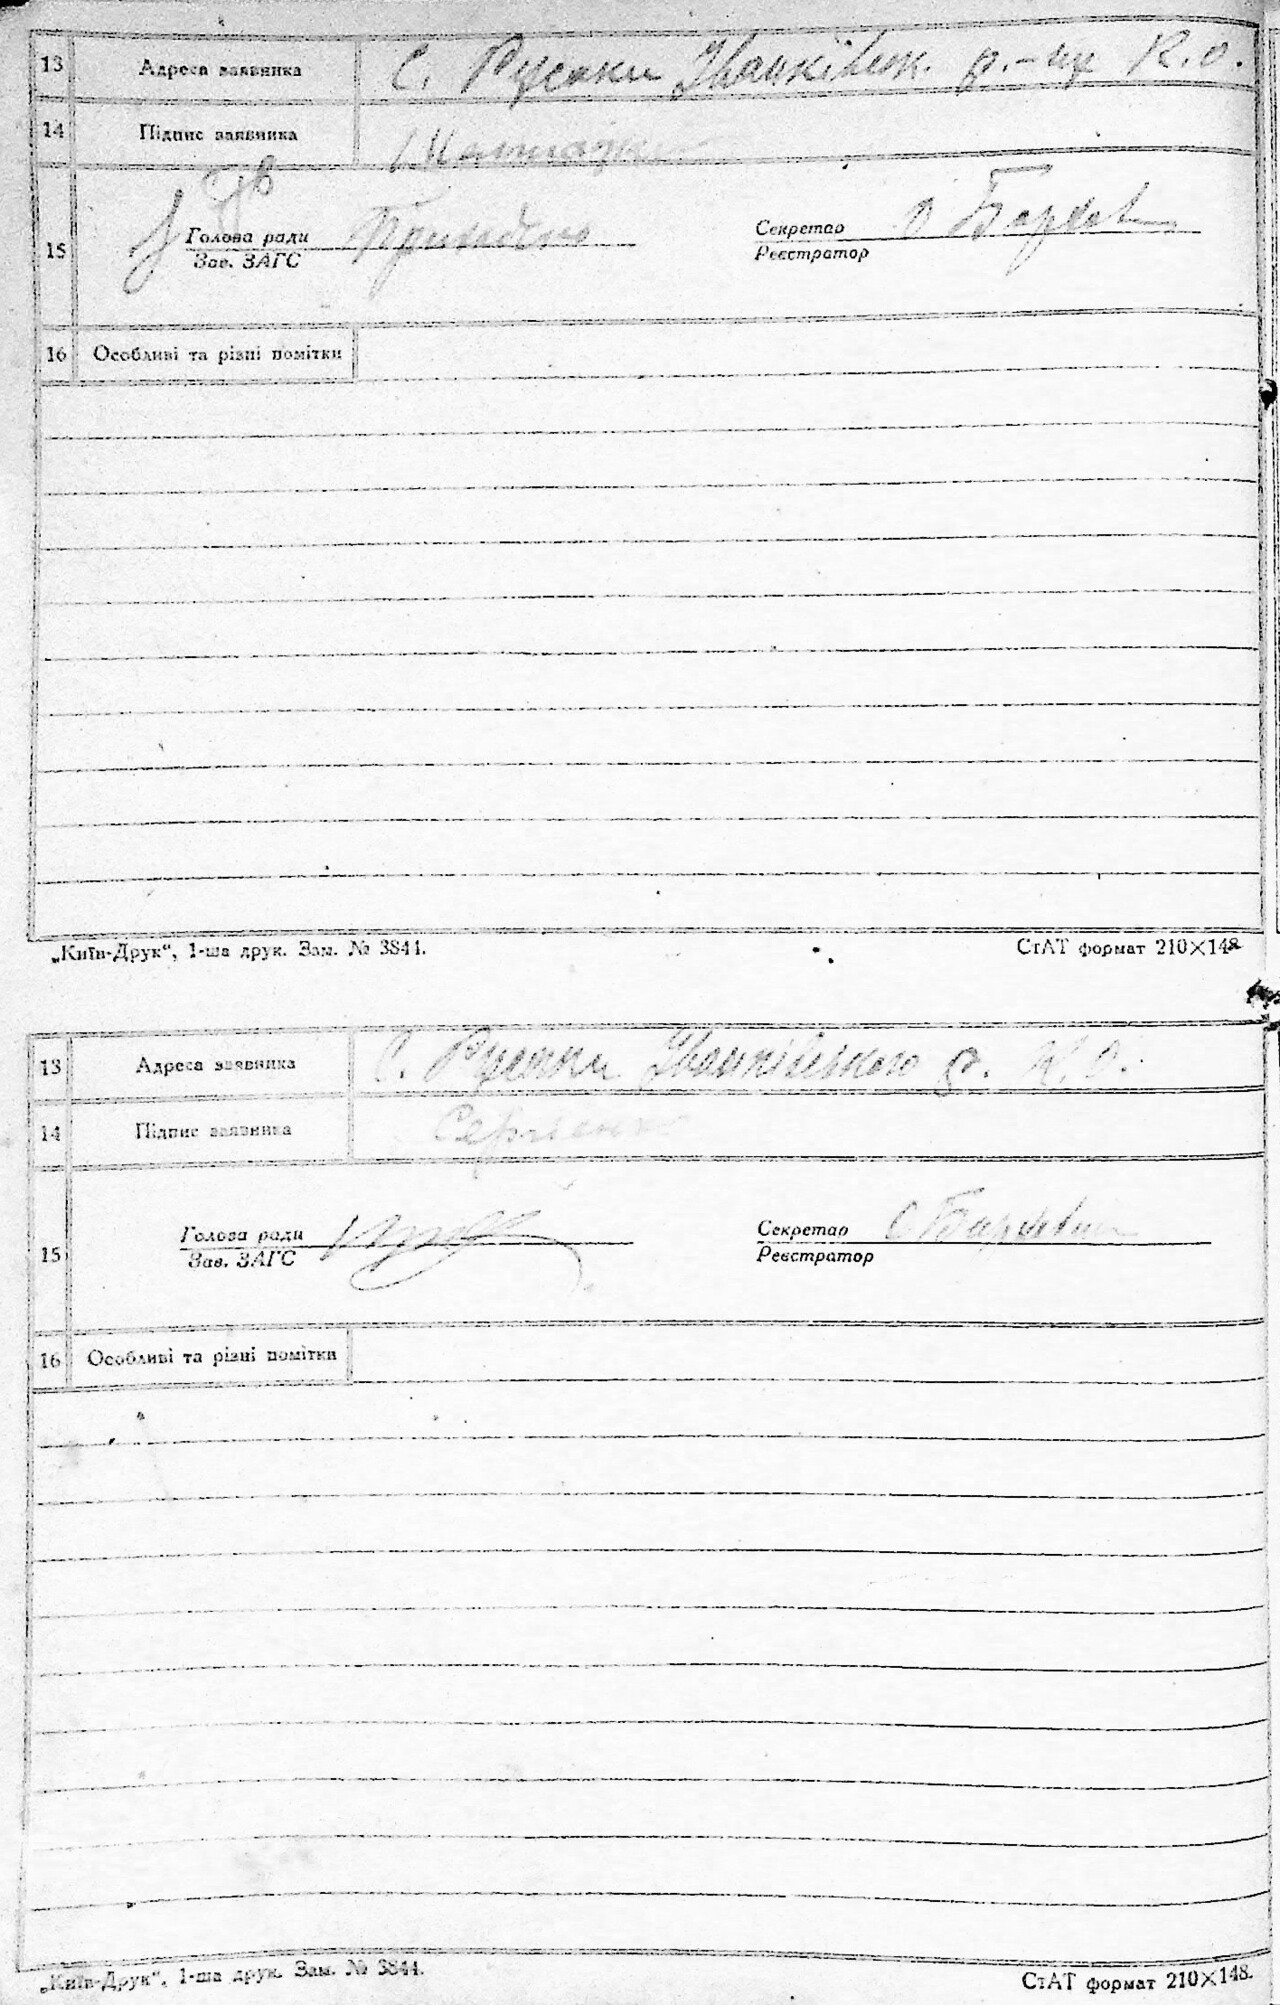 13 Адреса заявника С. Русаки Іванківськ. р.-ну К.О.
14 Підпис заявника
Голова ради Секретар
15 Зав. ЗАГС Реєстратор
16 Особливі та різні помітки
„Київ-Друк“, 1-ша друк. Зам. № 3844. СтАТ формат 210×148
13 Адреса заявника С. Русаки Іванківського р. К.О.
14 Підпис заявника Сергієнко
Голова ради Секретар
15 Зав. ЗАГС Реєстратор
16 Особливі та різні помітки
„Київ-Друк“, 1-ша друк. Зам. № 3844. СтАТ формат 210×148.